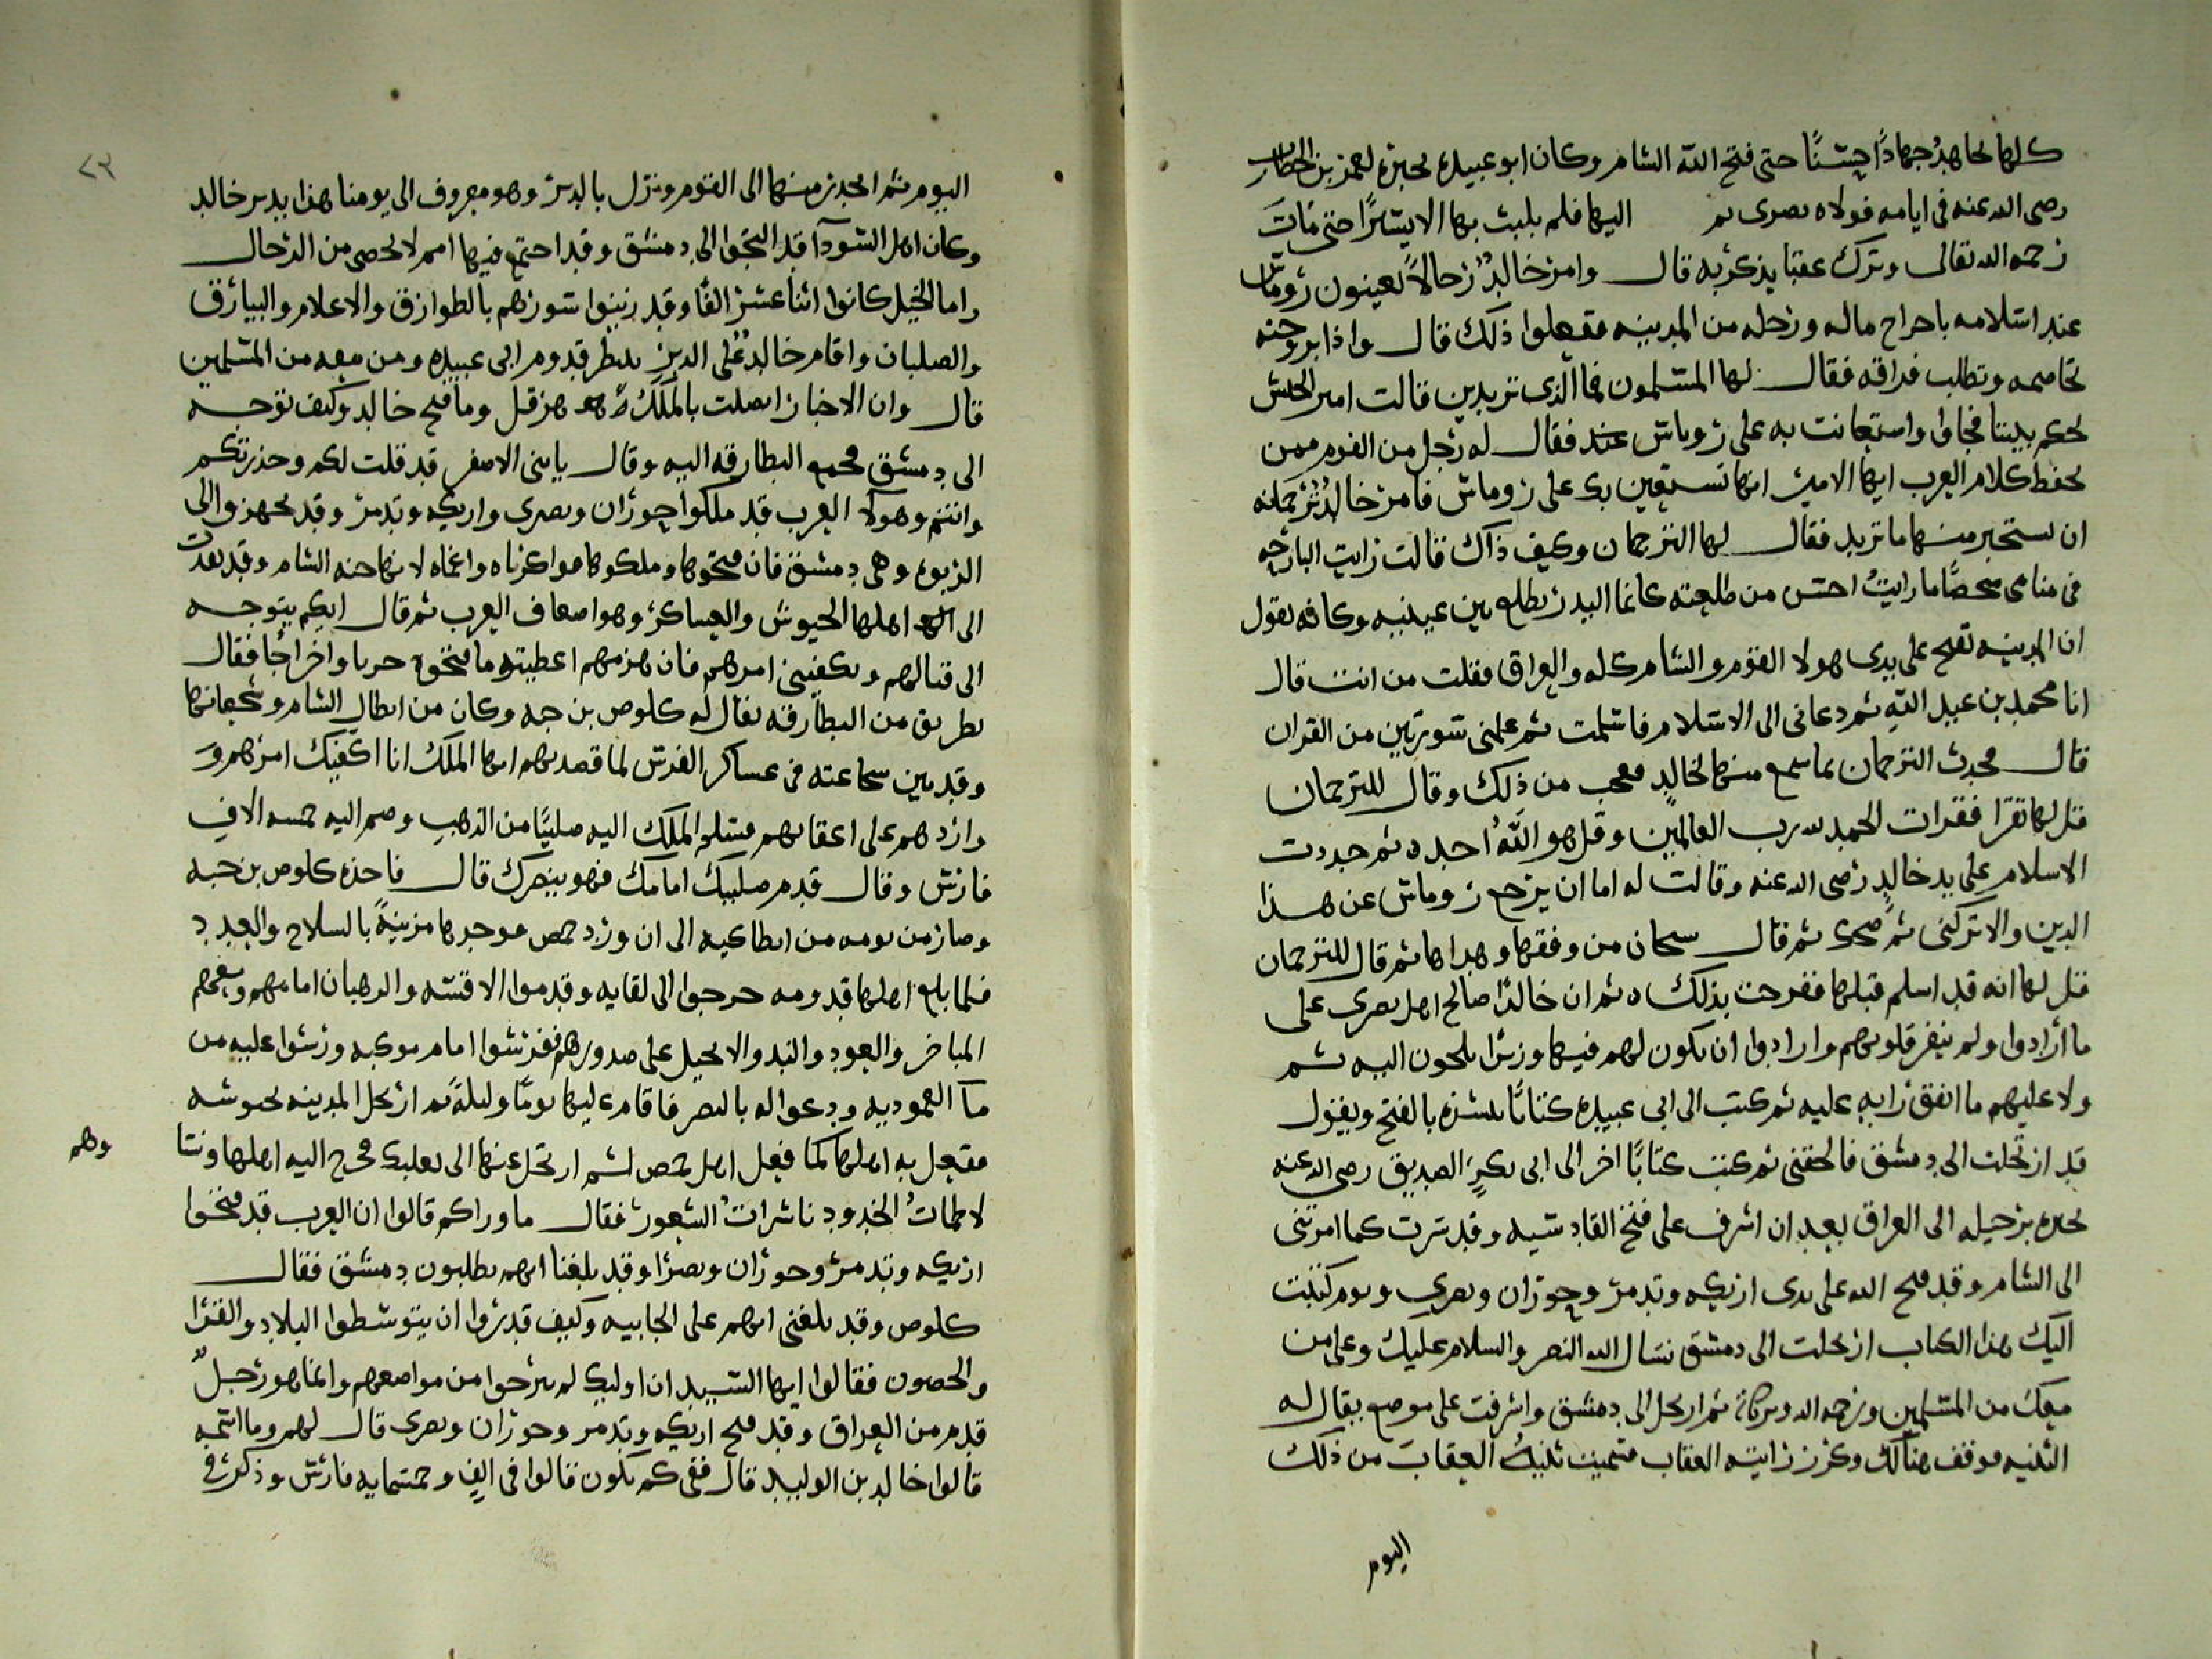 كلها يجاهد جهادًا حسنًا حتى فتح الله الشام وكان ابو عبيده يخبره لعمر بن الخطاب
رضى الله عنه فى ايامه فولاه بصرى ثم اليها فلم يلبث بها الا يسيرًا حتى مات
رحمه الله تعالى وترك عقبا يذكر به قال وامر خالدٌ رجالاً يعينون روماس
عند اسلامه باخراج ماله ورحله من المدينه ففعلوا ذلك قال واذا بزوجته
تخاصمه وتطلب فراقه فقال لها المسلمون فما الذى تريدين قالت امير الجيش
يحكم بيننا فجاوا واستعانت به على روماس فقال له رجل من القوم ممن
يحفظ كلام العرب ايها الامير انها تستعين بك على روماس فامر خالدٌ ترجمانه
ان يستخبر منها ما تريد فقال لها الترجمان وكيف ذاك قالت رايت البارحه
فى منامى شخصًا ما رايتُ احسن من طلعته كانما البدر يطلع من بين عينيه وكانه يقول
ان المدينه تفتح على يدى هولا القوم والشام كله والعراق فقلت من انت قال
انا محمد بن عبد الله ثم دعانى الى الاسلام فاسلمت ثم علمنى سورتين من القران
قال فحدث الترجمان بما سمع منها لخالدٍ فعجب من ذلك وقال للترجمان
قل لها تقرا فقرات الحمد لله رب العالمين وقل هو اللهُ احد ه ثم جددت
الاسلام على يد خالدٍ رضى الله عنه وقالت له اما ان يرجع روماس عن هذا
الدين والا تركنى ثم ضحك ثم قال سبحان من وفقها وهداها ثم قال للترجمان
قل لها انه قد اسلم قبلها ففرحت بذلك ه ثم ان خالدًا صالح اهل بصرى على
ما أرادوا ولم ينفر قلوبهم وارادوا ان يكون لهم فيها وزرًا يلجون اليه ثم
ولا عليهم ما اتفق رايه عليه ثم كتب الى ابى عبيده كتابًا يبشره بالفتح ويقول
قد ارتحلت الى دمشق فالحقنى ثم كتب كتابًا اخر الى ابى بكرٍ الصديق رضى الله عنه
يخبره برحيله الى العراق بعد ان اشرف على فتح القادسيه وقد سرت كما امرتنى
الى الشام وقد فتح الله على يدى اريكه وتدمر وحوران وبصرى ويوم كتبت
اليك هذا الكتاب ارتحلت الى دمشق نسال الله النصر والسلام عليك وعلى من
معك من المسلمين ورحمه الله وبركاته ثم ارتحل الى دمشق واشرفت على موضع يقال له
الثنيه فوقف هنالك وركز رايته العقاب فسميت ثنيةُ العقاب من ذلك
اليوم
٢٣
اليوم ثم انحدر منها الى القوم ونزل بالدير وهو معروف الى يومنا هذا بدير خالد
وكان اهل السوداَ قد التجوا الى دمشق وقد اجتمع فيها امم لا تحصى من الرجال
واما الخيل كانوا اثنا عشر الفًا وقد زينوا سورهم بالطوارق والاعلام والبيارق
والصلبان واقام خالدٌ على الدير ينتظر قدوم ابى عبيده ومن معه من المسلمين
قال وان الاخبار اتصلت بالملك هرقل وما فتح خالد وكيف توجه
الى دمشق فجمع البطارقه اليه وقال يا بنى الاصفر قد قلت لكم وحذرتكم
وانتم وهولا العرب قد ملكوا حوران وبصرى واريكه وتدمر وقد تجهزوا الى
الربوه وهى دمشق فان فتحوها وملكوها فواكرباه واغماه لانها جنه الشام وقد نفدت
الى اهلها الجيوش والعساكر وهو اضعاف العرب ثم قال ايكم يتوجه
الى قتالهم ويكفينى امرهم فان هزمهم اعطيته ما فتحوه حربا واخراجًا فقال
بطريق من البطارقه يقال له كلوص بن حبه وكان من ابطال الشام وشجعانها
وقد بين شجاعته فى عساكر الفرس لما قصدهم ايها الملك انا اكفيك امرهم و
واردهم على اعقابهم فسلم الملك اليه صليبًا من الذهب وضم اليه خمسه الاف
فارس وقال قدم صليبك امامك فهو ينصرك قال فاخذه كلوص بن حبه
وصار من يومه من انطاكيه الى ان ورد حمص فوجدها مزينةً بالسلاح والعدد
فلما بلغ اهلها قدومه خرجوا الى لقايه وقدموا الاقسه والرهبان امامهم ومعهم
المباخر والعود والند والانجيل على صدورهم ففرشوا امام موكبه ورشوا عليه من
مآ المعموديه ودعوا له بالنصر فاقام عليها يومًا وليلةً ثم ارتحل المدينه لجوشه
ففعل به اهلها كما فعل اهل حمص ثم ارتحل عنها الى بعلبك فخرج اليه اهلها ونسا
وهم
لاطماتُ الخدود ناشراتُ الشعور فقال ما وراكم قالوا ان العرب قد فتحوا
اريكه وتدمر وحوران وبصرًا وقد بلغنا انهم يطلبون دمشق فقال
كلوص وقد بلغنى انهم على الجابيه وكيف قدروا ان يتوسطوا البلاد والقرا
والحصون فقالوا ايها السيد ان اوليك لم يبرحوا من مواضعهم وانما هو رجلٌ
قدم من العراق وقد فتح اريكه وتدمر وحوران وبصرى قال لهم وما اسمه
قالوا خالد بن الوليد قال ففى كم يكون قالوا فى الفٍ وخمسمايه فارس وذكر فى